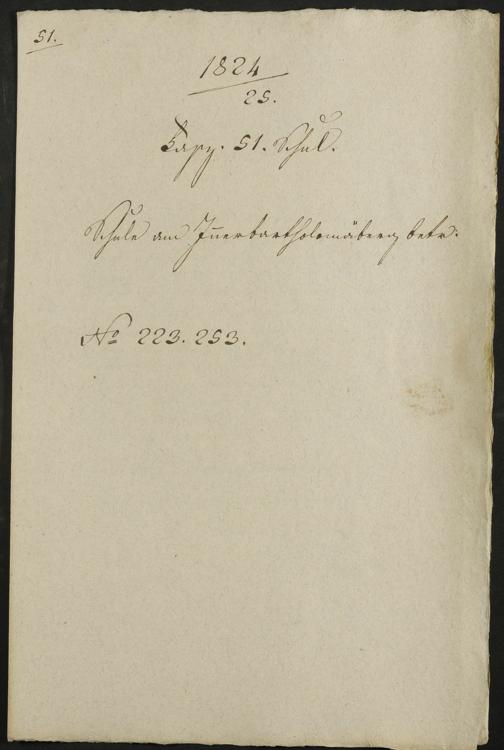 51.
1824
25.
Fasz. 51. Schul.
Schule am Innerbartholomäberg betr.
No 223. 253.